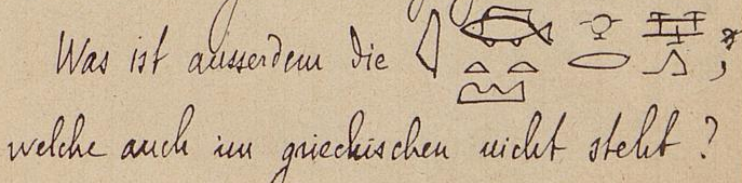 Was ist ausserdem die ;
welche auch im griechischen nicht steht?